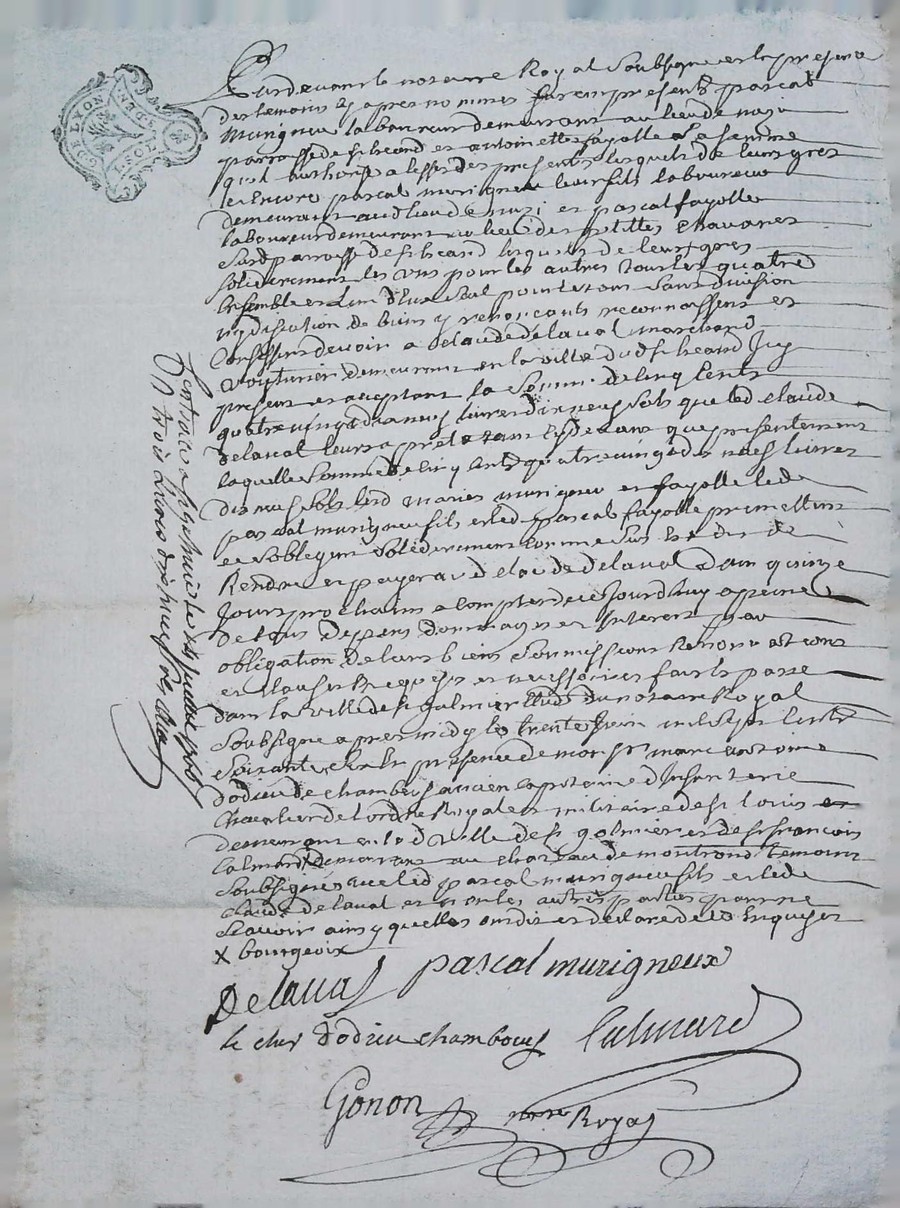 GDE LYON
DEN
I SOL
Pardevant le notaire Royal Soubsigne et en presence
des temoins cy apres nommes furent presents pascal
murigneu laboureur demeurant au lieu de
parroisse de st heand et antoinette fayolle sa femme
quil authorise a leffet des presentes lesquels de leurs gres
et Encore pascal murigneu leur fils laboureur
demeurant audt lieu de et pascal fayolle
laboureur demeurant au lieu des petittes Chavanes
susd parroisse de st heand lesquels de leurs gres
soliderement les uns pour les autres tous les quatre
Ensemble et lun deux seul pour le tous sans division
ny discution de biens y renoncants reconnoissent et
Confessent devoir a Claude delaval marchand
voiturier demeurant en la ville dud st heand Icy
present et acceptant la Somme de Cinq Cents
quatre vingt dix neuf livres dix neuf sols que led Claude
delaval leurs a preté tant cy devant que presentement
laquelle Somme de Cinq Cents quatre vingt dix neuf livres
dix neuf sols lesd maries murigneu et fayolle led
pascal murigneu fils et led pascal fayolle promettent
et Soblegent solidèrement comme sus est dit de
Rendre et payer aud Claude delaval dans quinze
Jours prochains a compter de ce Jourdhuy a peine
de tous depens dommages et Interest par
obligation de leurs biens Soumissions Renonciations
et Clauses Requises et necessaires fait et passé
dans la ville de st galmier etude du notaire Royal
Soubsigne apres midy le trente Juin mil sept Cents
Soixante en presence de mon sr marc antoine
dodieu de chambeus ancien Capitaine d'Infanterie
Chevalier de lordre Royale et militaire de st louis
demeurant en lad ville de st galmier et de sr francois
lalmard x demeurant au chateau de montrond temoins
Soubsignés avec led pascal murigneu fils et led
Claude delaval et non les autres parties pour ne
scavoir ainsy quelles ont dit et declaré de ce Enquises
x bourgeoix
Delaval pascal murigneux
le cher dodieu chambœuf lalmard
Gonon nore Royal
trois Livres dix neuf sols